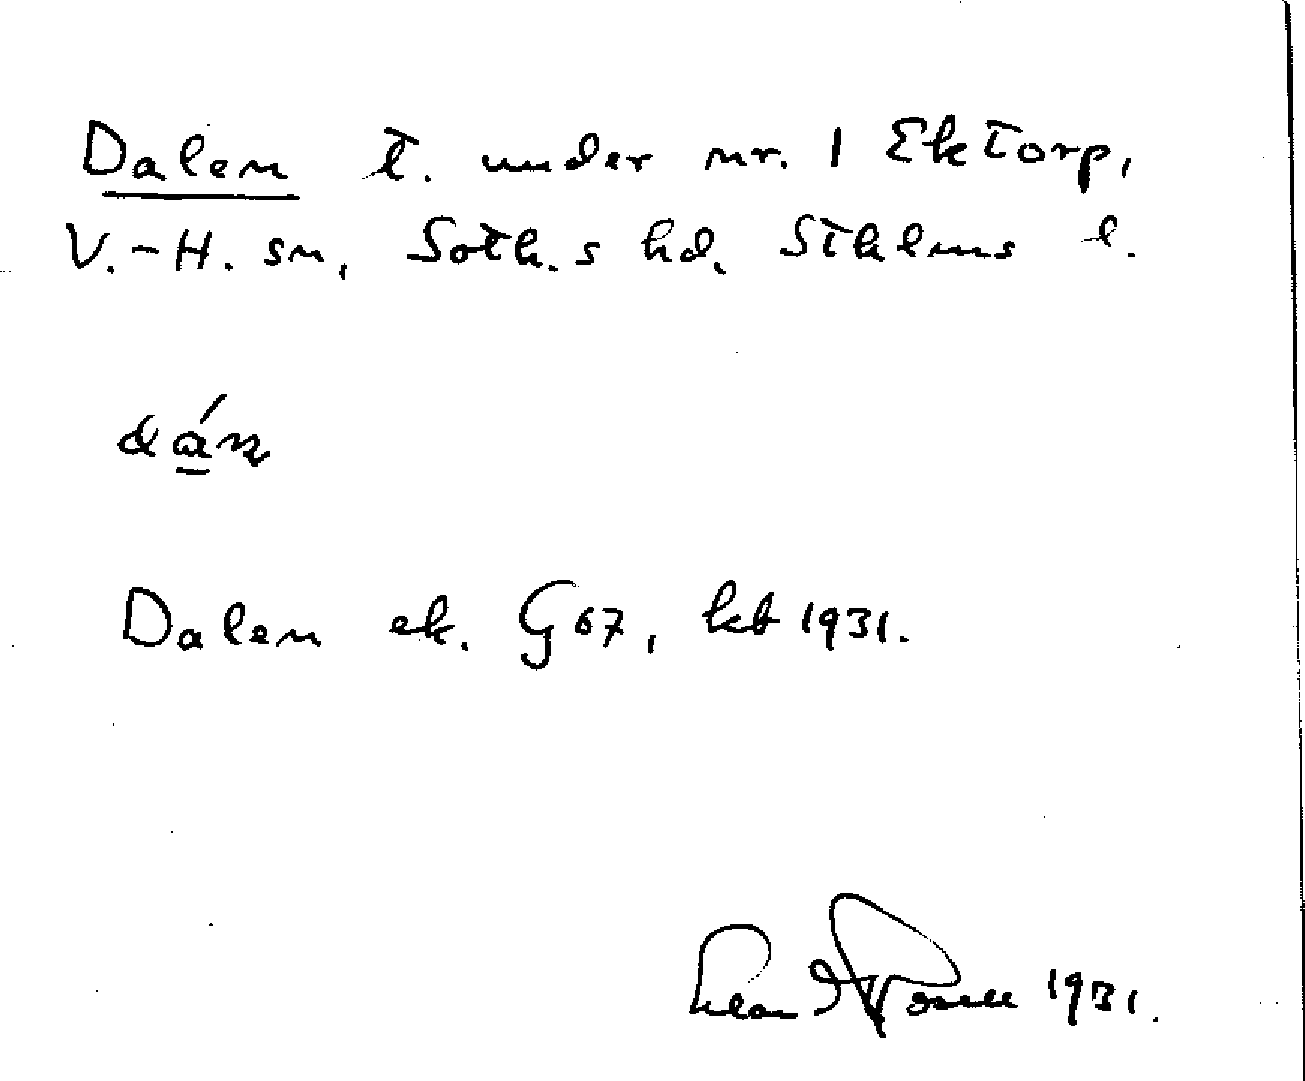 Dalen t. under nr. 1 Ektorp,
V.-H. sn, Soth.s hd. Sthlms l.
dán
Dalen ek. G67, kbt 1931.
1931.